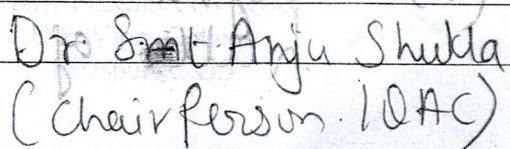 Dr Smt. Anju Shukla
(Chairperson. IQAC)